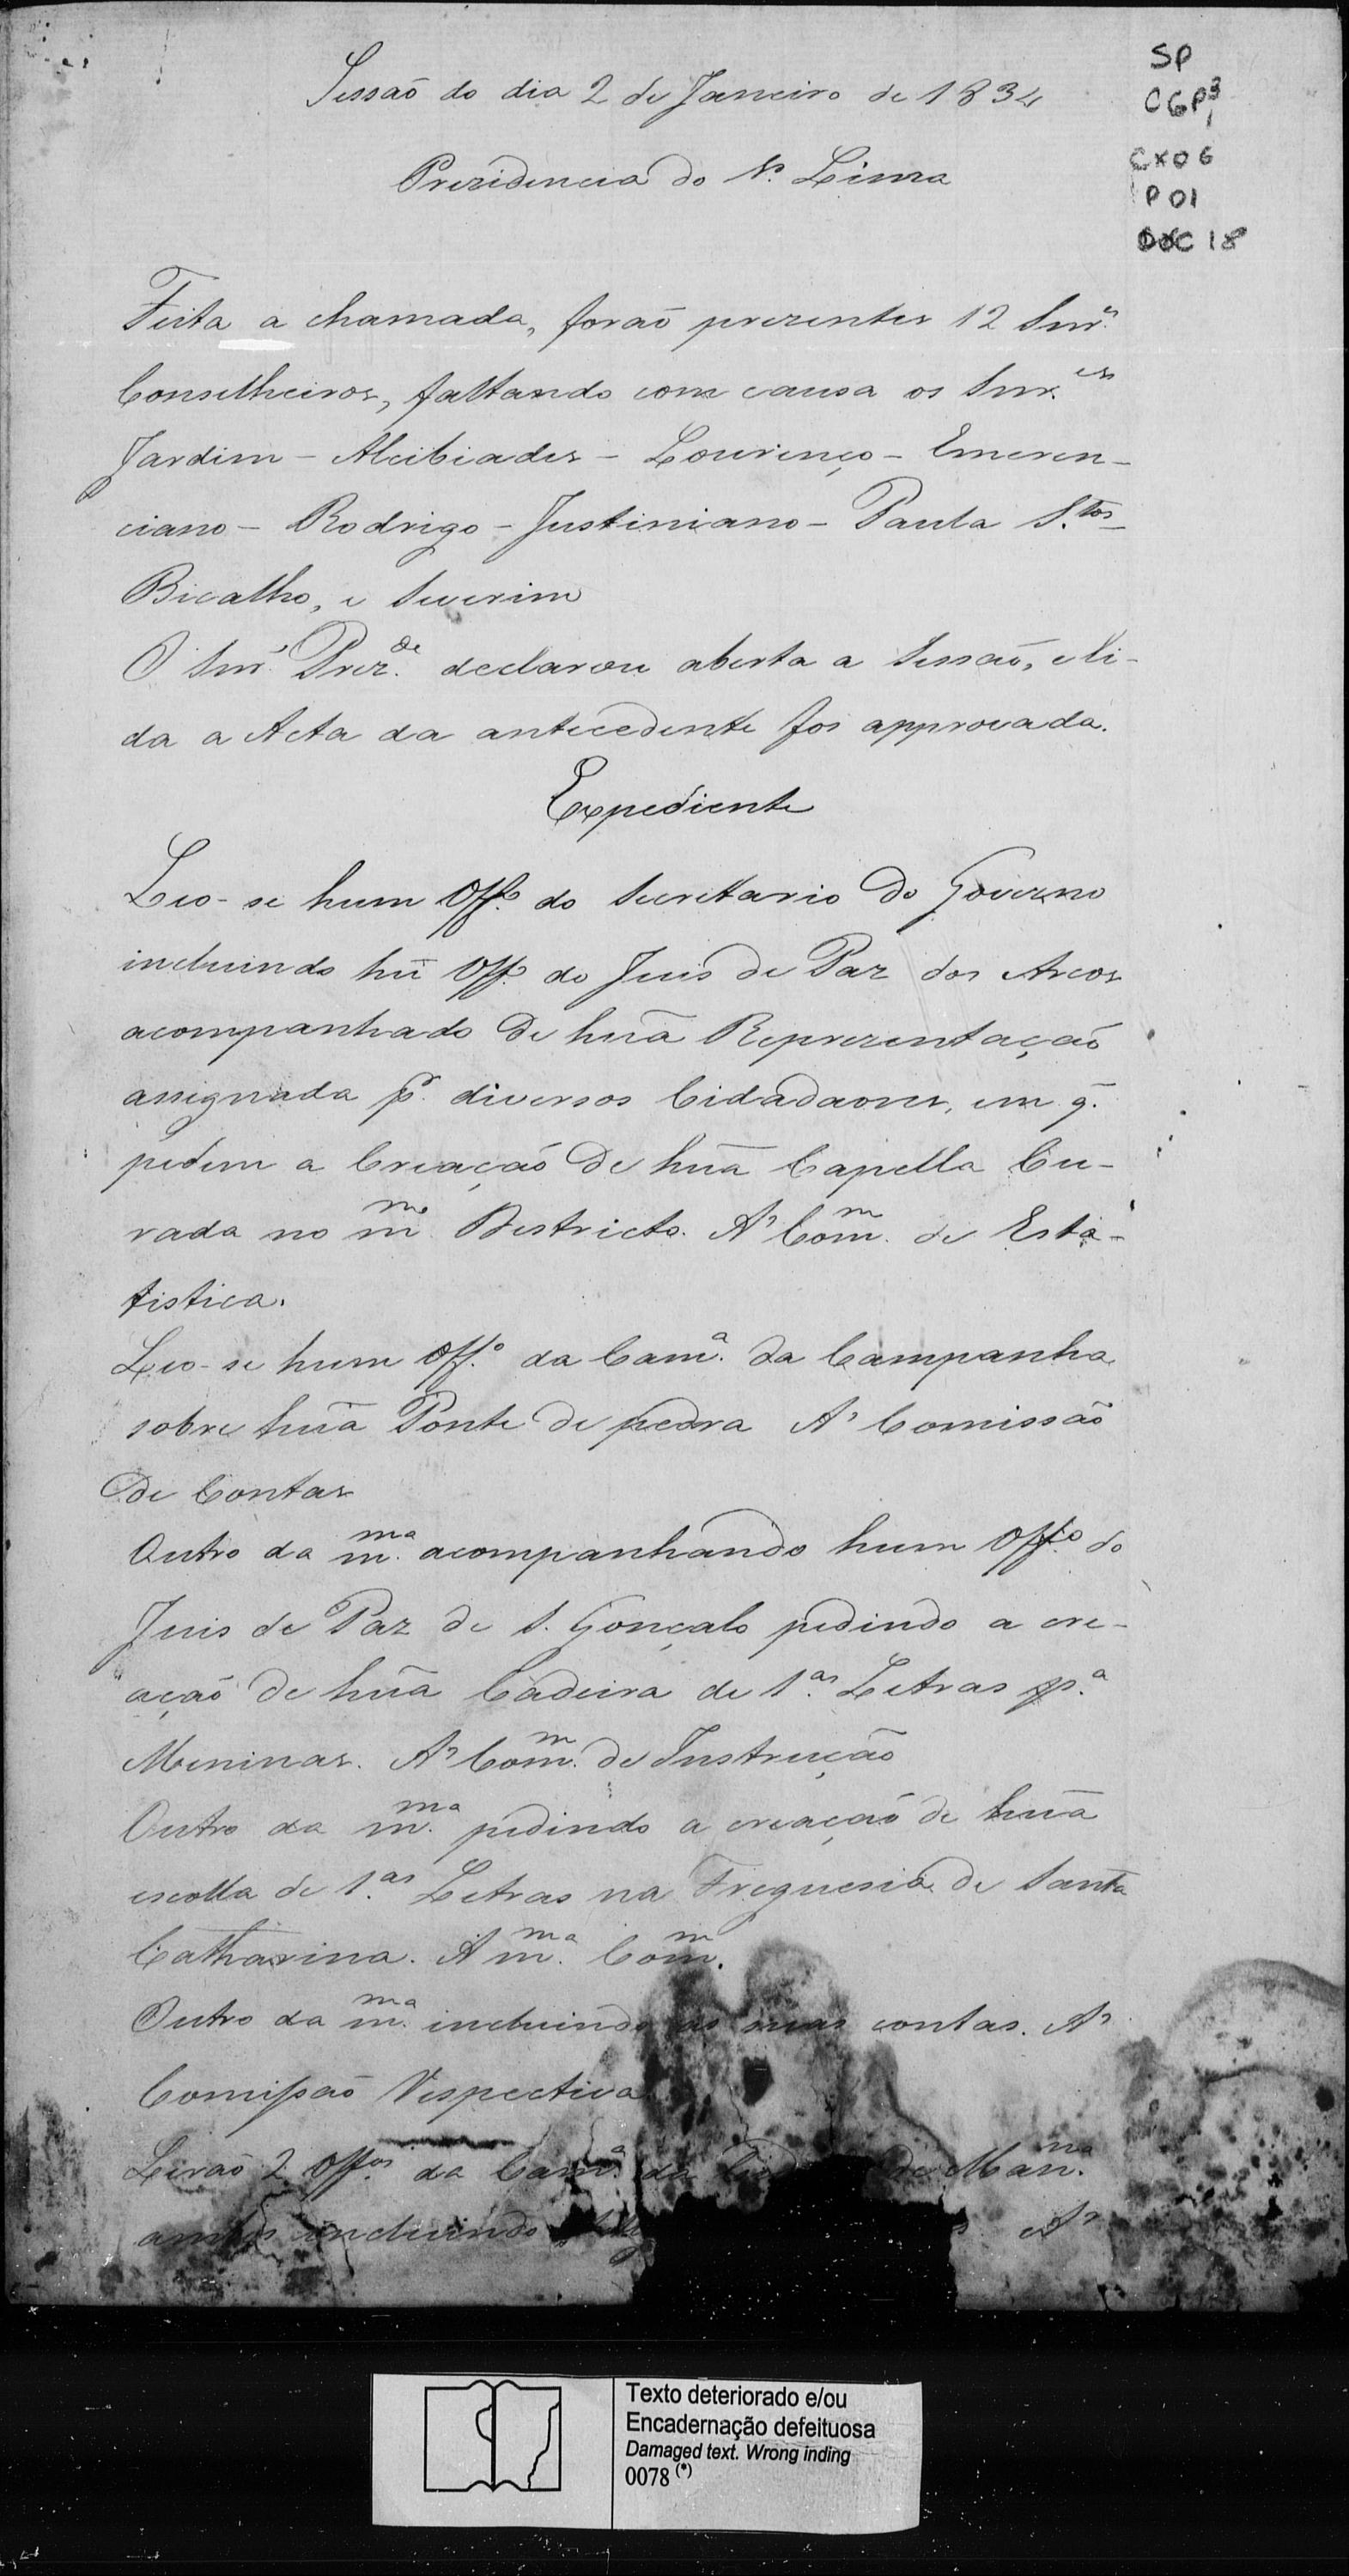 SP
CGP³1
CX06
P01
DOC 18
Sessaõ do dia 2 de Janeiro de 1834
Prezidencia do Sr. Lima
Feita a chamada, foraõ prezentes 12 Snrˢ
Conselheiros, faltando com causa os Snr.ᵉˢ
Jardim - Alcibiades - Lourenço - Emeren-
ciano - Rodrigo - Justiniano - Paula S.ᵗᵒˢ -
Bicalho, e Severim
O Snr. Prez.ᵈᵉ declarou aberta a Sessaõ, e li-
da a Acta da antecedente foi approvada.
Expediente
Leo-se hum Off.º do Secretario do Governo
incluindo hũ Off.º do Juis de Paz dos Arcos
acompanhado de hũa Reprezentaçaõ
assignada pʳ. diversos Cidadaons, em q̃.
pedem a Creaçaõ de hũa Capella Cu-
rada no m.ᵐᵒ Destricto. A' Com.ᵐ de Esta-
tistica.
Leo-se hum Off.º da Cam.ª da Campanha
sobre hũa Ponte de pedra A' Comissão
de Contas
Outro da m.ᵐᵃ acompanhando hum Off.º do
Juis de Paz de S. Gonçalo pedindo a cre-
açaõ de hũa Cadeira de 1.ᵃˢ Letras p.ª
Meninas. A' Com.ᵐ de Instrução
Outro da m.ᵐᵃ pedindo a creaçaõ de hũa
escolla de 1.ᵃˢ Letras na Freguesia de Santa
Catharina. A m.ᵐᵃ Com.ᵐ
Outro da m.ᵐᵃ incluindo as suas contas. A'
Comissaõ Respectiva
Leraõ 2 Off.ᵒˢ da Cam.ª da de Man.ⁿᵃ
ambos incluindo A'
Texto deteriorado e/ou
Encadernação defeituosa
Damaged text. Wrong inding
0078 (*)